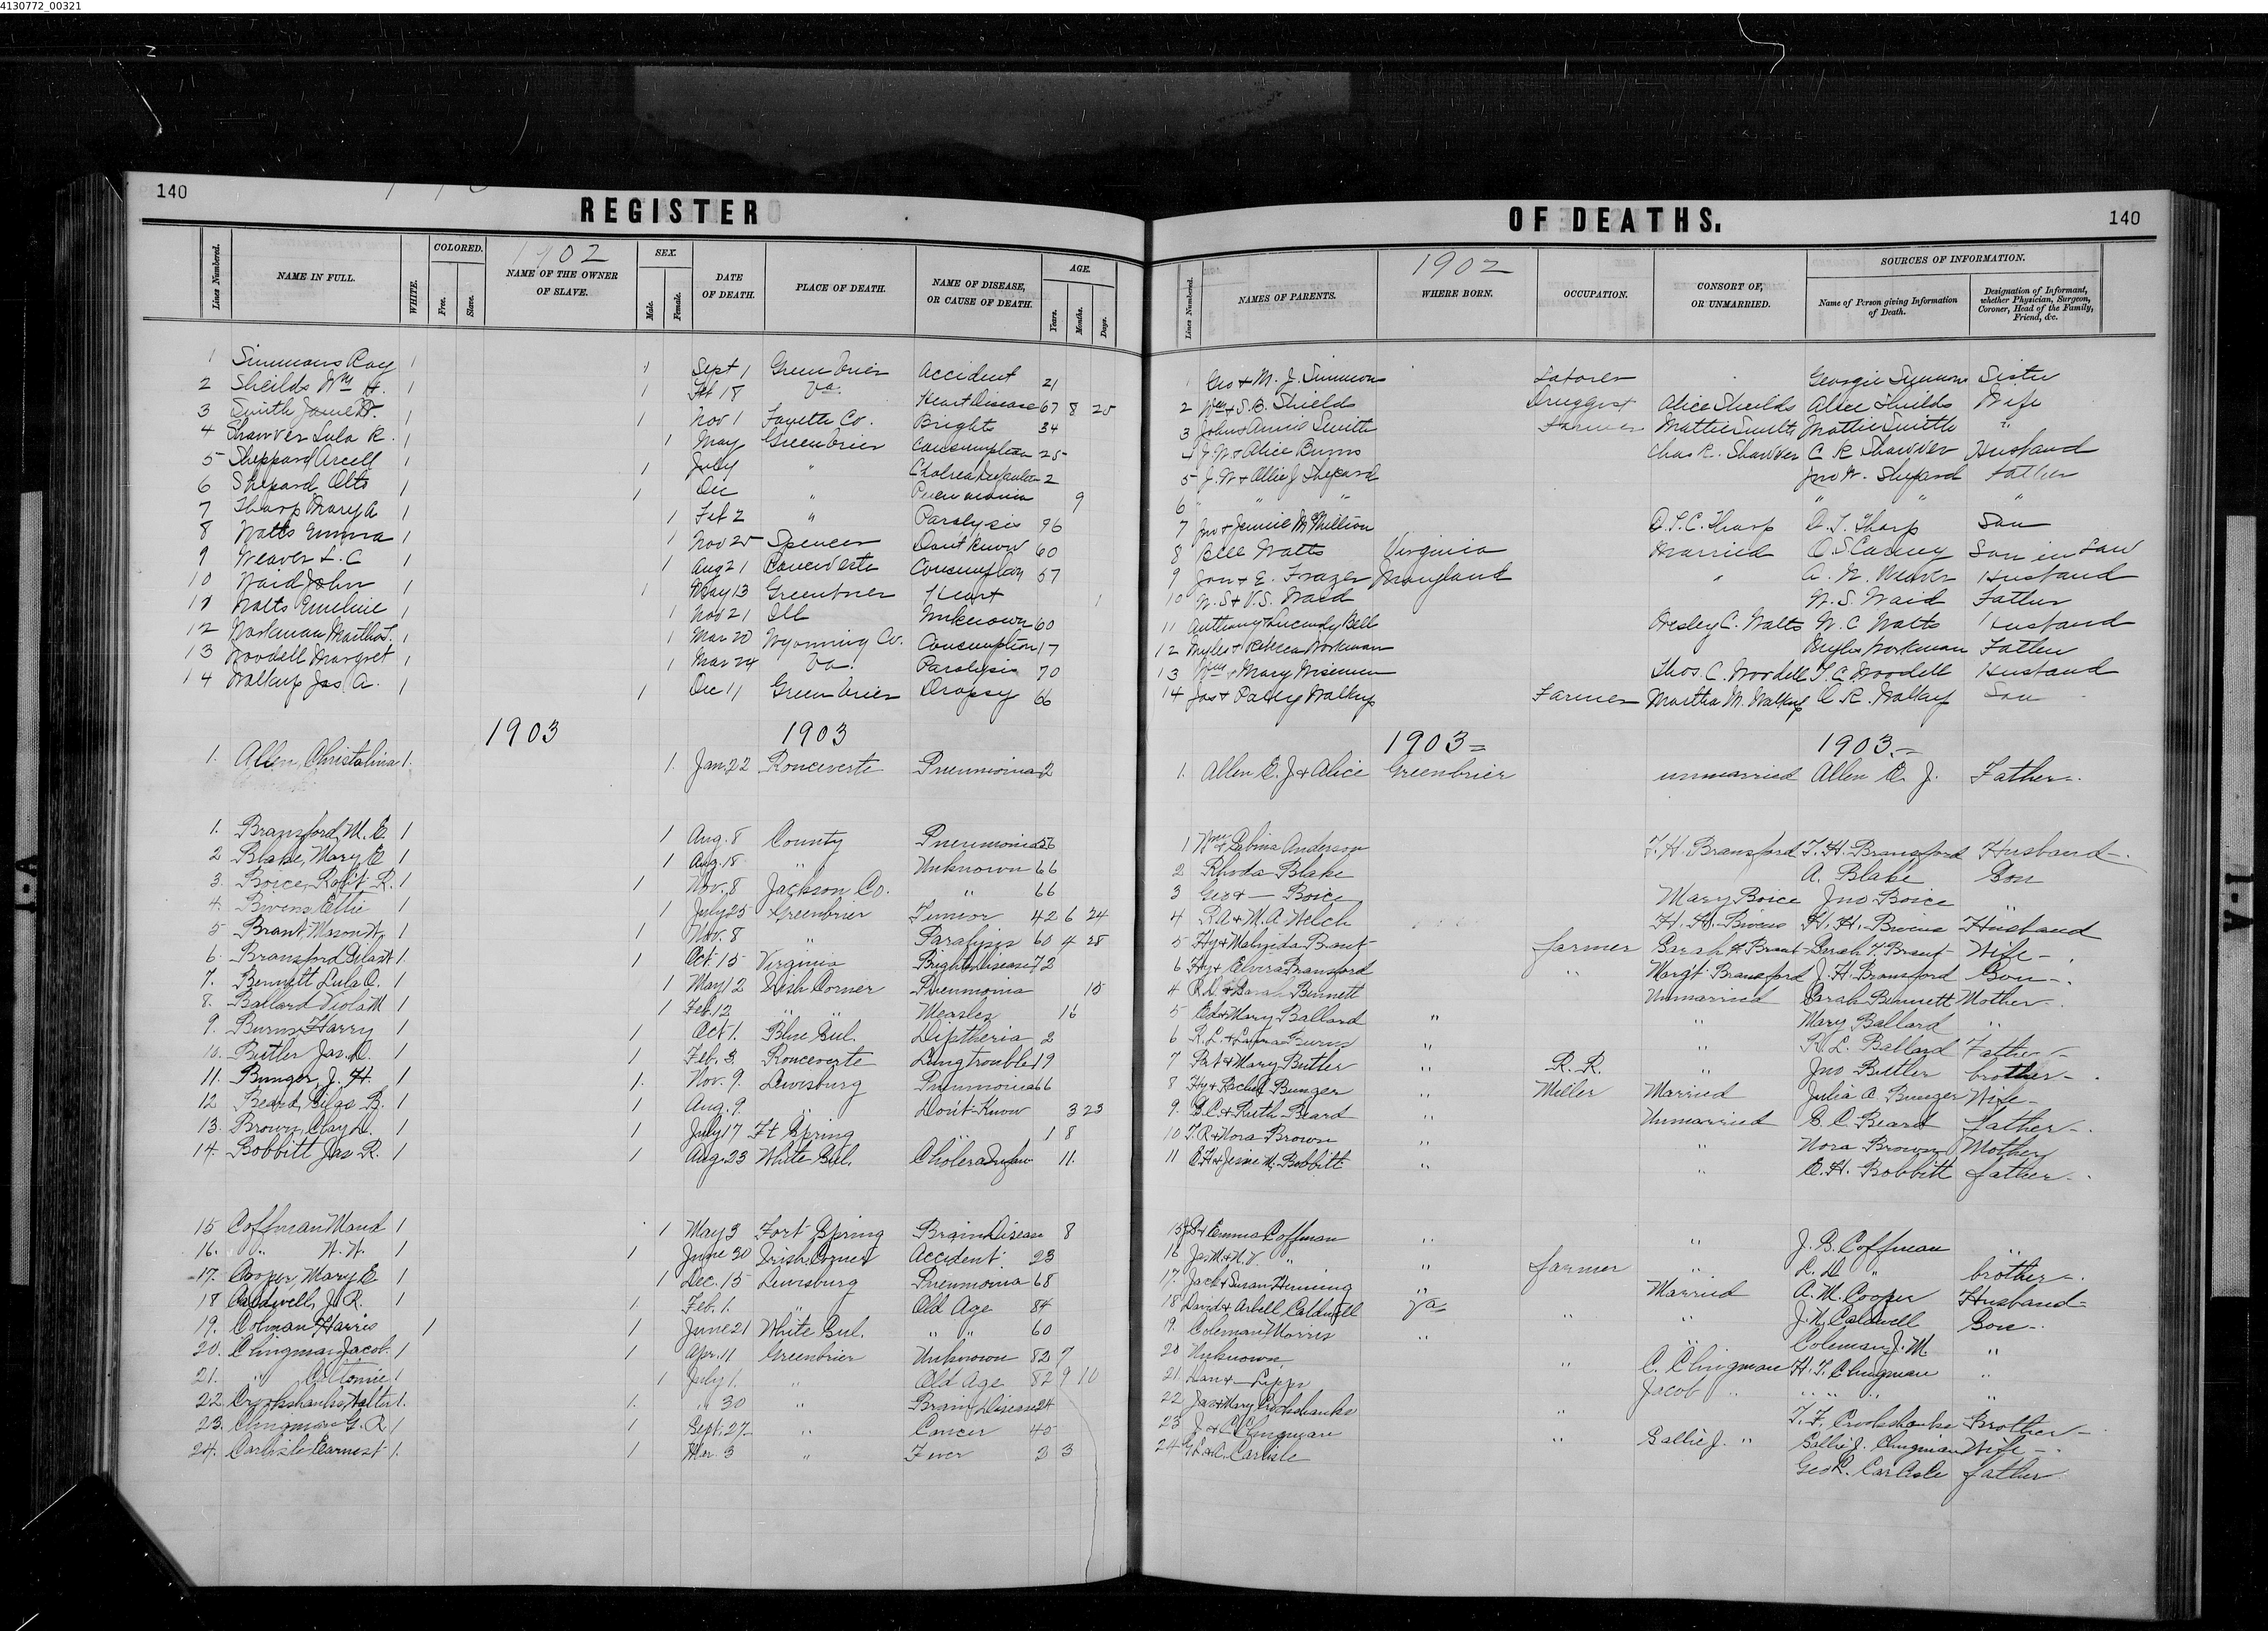 4130772_00321
140
REGISTER
1902
Lines Numbered. NAME IN FULL. WHITE. COLORED. Free. Slave. NAME OF THE OWNER OF SLAVE. SEX. Male. Female. DATE OF DEATH. PLACE OF DEATH. NAME OF DISEASE, OR CAUSE OF DEATH. AGE. Years. Months. Days.
1 Simmons Roy 1 1 Sept 1 Greenbrier Accident 21
2 Sheilds Wm H. 1 1 Feb 18 Va. Heart Disease 67 8 25
3 Smith James 1 1 Nov 1 Fayette Co. Brights 34
4 Shawver Lula R. 1 1 May Greenbrier Consumption 25
5 Sheppard Arcell 1 1 July " 2
6 Shepard Olto 1 1 Dec " Pneumonia 9
7 Tharp Mary A 1 1 Feb 2 " Paralysis 96
8 Watts Emma 1 1 Nov 25 Spencer Dont Know 60
9 Weaver L. C 1 1 Aug 21 Ronceverte Consumption 57
10 Waid John 1 1 May 13 Greenbrier Heart 1
11 Watts Emeline 1 1 Nov 21 Ill Unknown 60
12 Workman Martha L. 1 1 Mar 20 Wyoming Co. Consumption 17
13 Woodell Margret 1 1 Mar 24 Va. Paralysis 70
14 Walkup Jas A. 1 1 Dec 11 Greenbrier Dropsy 66
1903 1903
1. Allen, Christalina 1. 1. Jan. 22 Ronceverte Pneumonia 2
1. Bransford, M. E. 1 1 Aug. 8 County Pneumonia 56
2 Blake, Mary E 1 1 Aug. 18 " Unknown 66
3. Boice, Rob't R. 1 1 Nov. 8 Jackson Co. " 66
4. Bivens, Ettie 1 1 July 25 Greenbrier Tumor 42 6 24
5 Brant, Mason H. 1 1 Nov. 8 " Paralysis 60 4 28
6. Bransford Silas H 1. 1 Oct. 15 Virginia Brights Disease 72
7. Bennett Lula O. 1 1 May 12 Irish Corner Pneumonia 15
8. Ballard Viola M 1 1 Feb. 12 " " Measles 16
9. Burns, Harry 1 1 Oct 1. Blue Sul. Diptheria 2
10. Butler Jas. D. 1 1 Feb. 3. Ronceverte Lung trouble 19
11. Bunger, J. H. 1 1. Nov. 9. Lewisburg Pneumonia 66
12 Beard, B. 1 1 Aug. 9. " Don't Know 3 23
13. Brown, Clay L. 1 1 July 17 Ft Spring " 1 8
14. Bobbitt Jas R. 1 1 Aug. 23 White Sul. Cholera Infan 11.
15 Coffman Maud 1 1 May 3 Fort Spring Brain Disease 8
16. " W. W. 1 1 June 30 Irish Corner Accident 23
17. Cooper, Mary E 1 1 Dec. 15 Lewisburg Pneumonia 68
18 Caldwell, J. R. 1 1 Feb. 1. " Old Age 84
19. Colman Harris 1 1 June 21 White Sul. " " 60
20. Clingman Jacob. 1 1 Apr. 11 Greenbrier Unknown 82 7
21. " 1 1 July 1. " Old Age 82 9 10
22 Crookshanks, Walter 1. 1. " 30 " Brain Disease 24
23. Clingman G. R. 1 1 Sept. 27 " Cancer 45
24. Carlisle Earnest 1. 1 Mar. 3 " Fever 3 3
140
OF DEATHS.
1902
Lines Numbered. NAMES OF PARENTS. WHERE BORN. OCCUPATION. CONSORT OF, OR UNMARRIED. SOURCES OF INFORMATION. Name of Person giving Information of Death. Designation of Informant, whether Physician, Surgeon, Coroner, Head of the Family, Friend, &c.
1 Geo & M. J. Simmons Laborer Georgie Simmons Sister
2 Wm & S. B. Shields Druggist Alice Sheilds Alice Shields Wife
3 John & Annie Smith Farmer Mattie Smith Mattie Smith "
J. W. & Alice Burns Chas R. Shawver C R Shawver Husband
5 J. W & Allie J Shepard Jno W. Shepard Father
6 " " " " "
7 Jno & Jennie McMillion D. S. C. Tharp D. T. Tharp Son
8 Bell Watts Virginia Married Son in Law
9 Jon & E. Frazer Maryland " A. N. Weaver Husband
10 W. S & V. S. Waid W. S. Waid Father
11 Anthony & Lucindy Bell Wesley C. Watts W. C Watts Husband
12 Myles & Rebecca Workman Myles Workman Father
13 Wm & Mary Wiseman Thos. C. Woodell T. C. Woodell Husband
14 Jas & Patsy Walkup Farmer Martha M. Walkup C R. Walkup Son
1903 = 1903. -
1. Allen E. J & Alice Greenbrier unmarried Allen E. J. Father -.
1 Wm & Sabina Anderson T. H. Bransford T. H. Bransford Husband -.
2 Rhoda Blake A. Blake Son
3 Geo & — Boice Mary Boice Jno Boice "
4 R. A. & M. A. Welch H. H. Bivens H. H. Bivens Husband
5 Hy & Malzida Brant farmer Sarah F. Brant Sarah F. Brant Wife -
6 Hy & Elvira Bransford " Marg't Bransford J. H. Bransford Son -.
4 R. D. & Sarah Bennett Unmarried Sarah Bennett Mother -.
5 Ed & Mary Ballard " " Mary Ballard "
6 R. L. & Laura Burns " " R. L. Ballard Father -
7 Pat & Mary Butler " R. R. " Jno Butler brother -.
8 Hy & Rachel Bunger " Miller Married Julia A. Bunger Wife -
9. S. C. & Ruth Beard " Unmarried S. C. Beard father -.
10 T. R & Nora Brown " " Nora Brown Mother
11 E. H & Jessie M. Bobbitt " " E. H. Bobbitt father -.
15 J B & Emma Coffman " " J. B. Coffman "
16 Jas M. & N. V. " " farmer " L. D " brother -.
17. Jack & Susan Henning " Married A. M. Cooper Husband =
18 David & Arbell Caldwell Va " " J. N. Caldwell Son -.
19. Coleman Morris " Coleman J. M. "
20 Unknown. " C. Clingman H. T. Clingman "
21. Dan & — Jacob " " " " "
22. Jas & Mary Crookshanks " T. F. Crookshanks Brother -
23 J. & C. Clingman " Sallie J. " Sallie J. Clingman Wife -.
24 Carlisle Geo R. Carlisle father